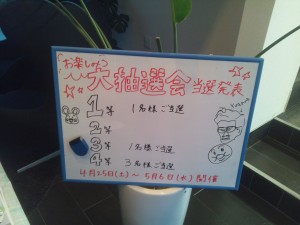 お楽しみ
大抽選会当選発表
1等 1名様ご当選
2等
3等 1名様ご当選
4等 3名様ご当選
4月25日(土)～5月6日(水)開催